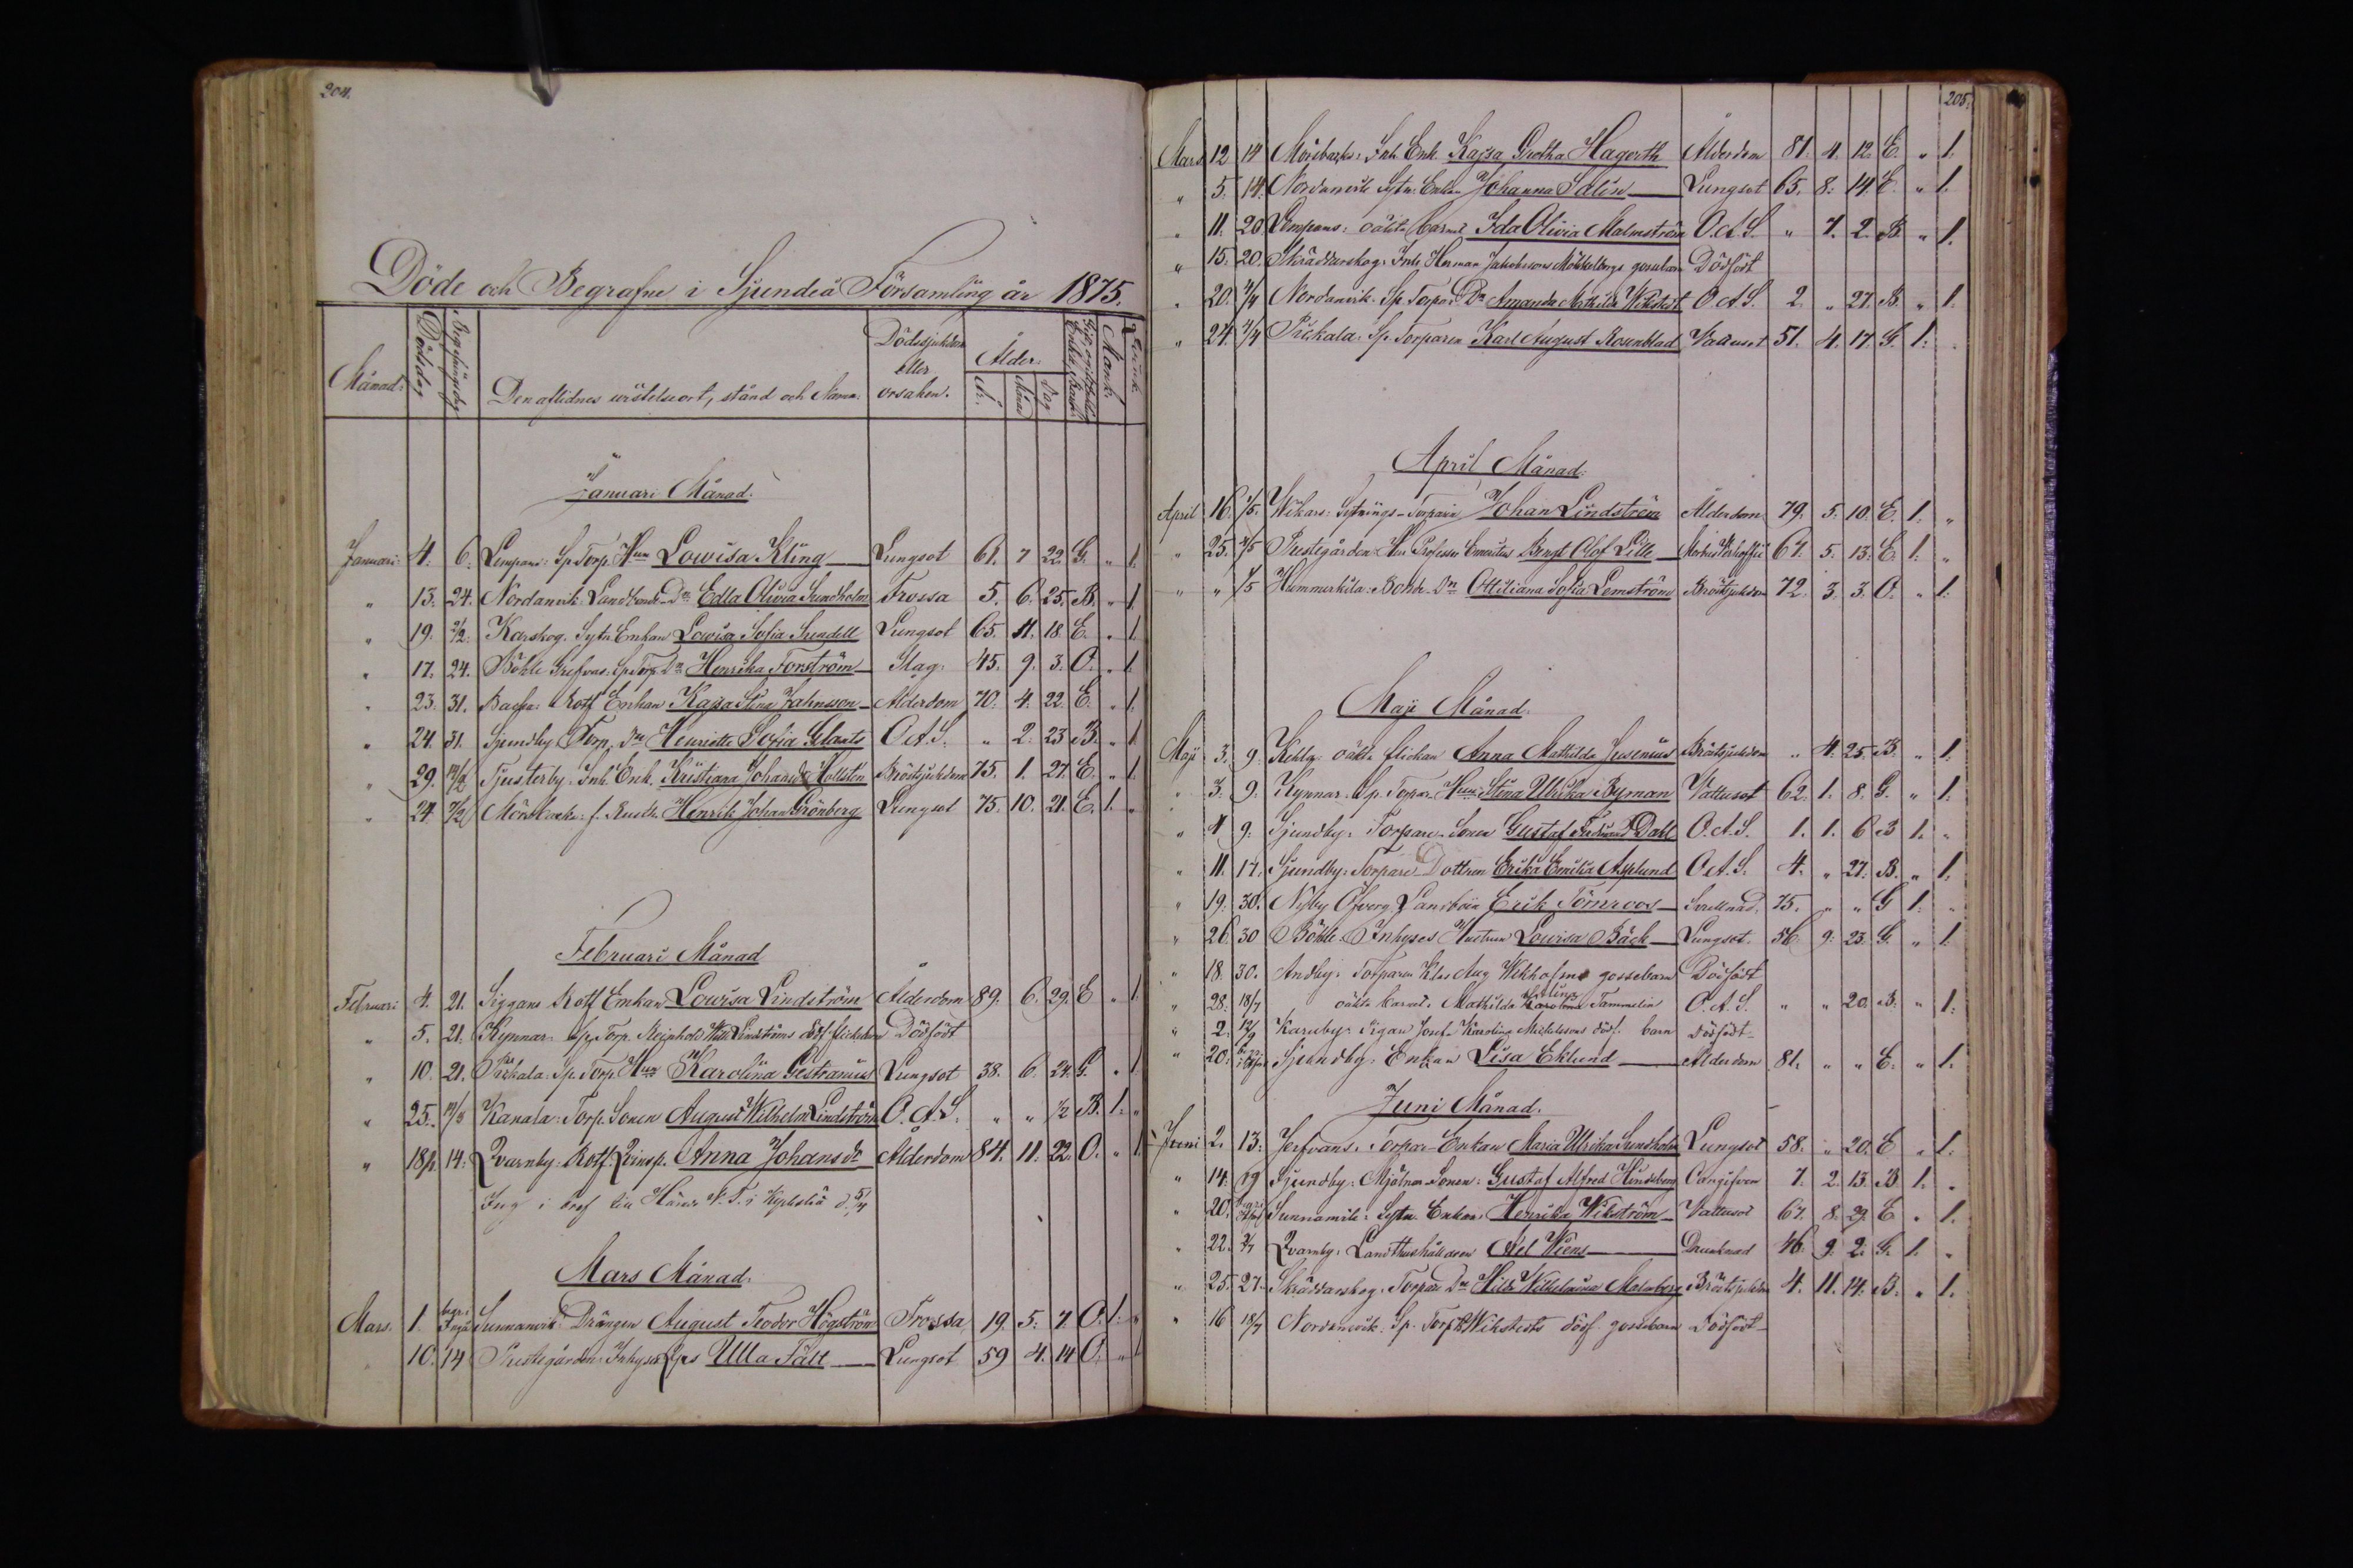 204.
Döde och Begrafne i Sjundeå Församling år 1875.
Månad: Dödsdag Begrafningsdag Den aflidnes vistelseort, stånd och Namn. Dödssjukdom eller orsaken. Ålder: År: Månad Dag Mank: Qvink:
Januari Månad.
Januari 4. 6. Lempans: Sp. Torp. Hun Lowisa Kling Lungsot 61. 7 22. G. " 1.
" 13. 24. Nordanvik Landbonde Dr Edla Olivia Sundholm Trossa 5. 6. 25. B. " 1.
" 19. 2/2. Karskog. Sytn. Enkan Lowisa Sofia Sundell Lungsot 65. 11. 18. E. " 1.
" 17. 24. Böhle Sp. Torp. Dr Henrika Forström Slag. 45. 9. 3. O. " 1.
" 23. 31. Rotf Enkan Kajsa Stina Jahnsson Ålderdom 70. 4. 22. E. " 1.
" 24. 31. Sjundby Torp. Dr Henriette Sofia Glants O.A.S. " 2. 23 B. " 1.
" 29. 14/2 Tjusterby. Inh. Enk. Kristiana Johansdr Hollstén Bröstsjukdom 75. 1. 27. E. " 1.
" 24. 7/2 Mörsbacka: f. Henrik Johan Grönberg Lungsot 75. 10. 21. E. 1. "
Februari Månad
Februari 4. 21. Siggans Rotf Enkan Lowisa Lindström Ålderdom 89. 6. 29. E " 1.
" 5. 21. Kynnar Sp. Torp. Reinhold Wilh. Lindströms dödf. flickebarn Dödfödt
" 10. 21. Pickala. Sp. Torp. Hun Karolina Gestranius Lungsot 38. 6. 24. G. " 1.
" 25. 14/3 Kanala: Torp. Sonen August Wilhelm Lindström O.A.S. " " 1/2 B. 1. "
" 18/2. 14. Qvarnby. Rotf. Qvinsp. Anna Johansdr Ålderdom 84. 11. 22. O. " 1.
Mars Månad.
Mars. 1. begr. i Ingå Sunnanvik Drängen August Teodor Högström Trossa 19. 5. 7. O. 1. "
10. 14 Prestegården Inhyses Ulla Fält Lungsot 59 4. 14 O. " 1.
205.
Mars 12 14 Mörsbacka: Inh. Enk. Kajsa Gretha Hagerth Ålderdom 81. 4. 12. E. " 1.
" 5. 14. Nordanvik Sytn. Enkan Johanna Salin Lungsot 65. 8. 14. E. " 1.
" 11. 20. Lempans: oäkta barnet Ida Olivia Malmström O.A.S. " 7. 2. B. " 1.
" 15. 20. Skräddarskog. Inh. Herman Jakobssons gossebarn Dödfödt
" 20. 4/4 Nordanvik. Sp. Torpar Dr Amanda Mathilda Wikstedt O.A.S. 2. " 27. B. " 1.
" 24. 4/4 Pickala. Sp. Torparen Karl August Rosenblad Vattusot 51. 4. 17. G. 1.
April Månad.
April 16. 1/5. Wikars: Sytnings-Torparen Johan Lindström Ålderdom 79. 5. 10. E. 1. "
" 25. Prestegården Herr Professor Emeritus Bengt Olof Lille Morbus Werlhofii 67. 5. 13. E. 1. "
" " /5 Hummerkila: Bonde Dn Ottiliana Sofia Lemström Bröstsjukdom 72. 3. 3. O. " 1.
Maji Månad.
Maji 3. 9. oäkta flickan Anna Mathilda Jusenius Bröstsjukdom " 4. 25. B " 1.
" 3. 9. Kynnar. Sp. Torpar. Hun Stina Ulrika Byman Vattusot 62. 1. 8. G. " 1.
" 4 9. Sjundby: Torpare Sonen Gustaf Edvard Dahl O.A.S. 1. 1. 6 B 1. "
" 11. 17. Sjundby: Torpare Dottren Erika Emilia Asplund O.A.S. 4. " 27. B. " 1.
" 19. 30. Nyby Öfverg. Landbon Erik Törnroos Svullnad. 75. " " G 1. "
" 26. 30 Böhle. Inhyses Hustrun Lowisa Bäck Lungsot. 56 9. 23. G. " 1.
" 18. 30. Andby: Torparen Klas Aug Wikholms gossebarn Dödfödt
" 28. 18/7 oäkta barnet. Mathilda Karolina Tammelin O.A.S. " " 20. B. " 1.
" 2. 12/9 Karuby. Pigan Josefa Karolina Michelssons dödf. barn Dödfödt
" 20. Sjundby: Enkan Lisa Eklund Ålderdom 81. " " E. " 1.
Juni Månad.
Juni 2. 13. Jerfvans. Torpar-Enkan Maria Ulrika Sundholm Lungsot 58. " 20. E " 1.
" 14. 19 Sjundby: Mjölnar Sonen: Gustaf Alfred Hindsberg 7. 2. 13. B 1. "
" 20. Sunnanvik: Sytn. Enkan Henrika Wikström Vattusot 67. 8. 29. E " 1.
" 22. Qvarnby: Landthushållaren Axel Wiens Drunknad 46. 9. 2. G. 1. "
" 25. 27. Skräddarskog. Torpare Dr Hilda Wilhelmina Malmberg Bröstsjukdom 4. 11. 14. B. " 1.
" 16 18/7 Nordanvik. Sp. Torp. Wikstedts dödf. gossebarn Dödfödt